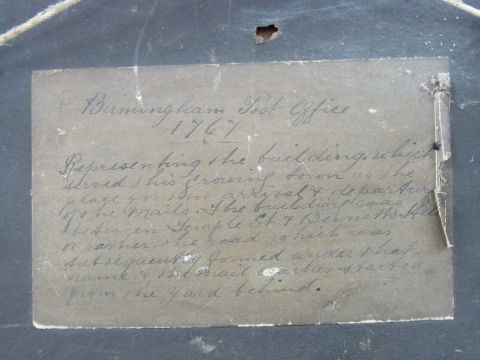 Birmingham Post Office
1767
Representing the building which
served this growing town as the
place for the arrival & departure
of the mails. The building was
between Temple St & Bennetts Hill
or rather, the road which was
subsequently formed under that
name & the mail coaches started
from the yard behind.